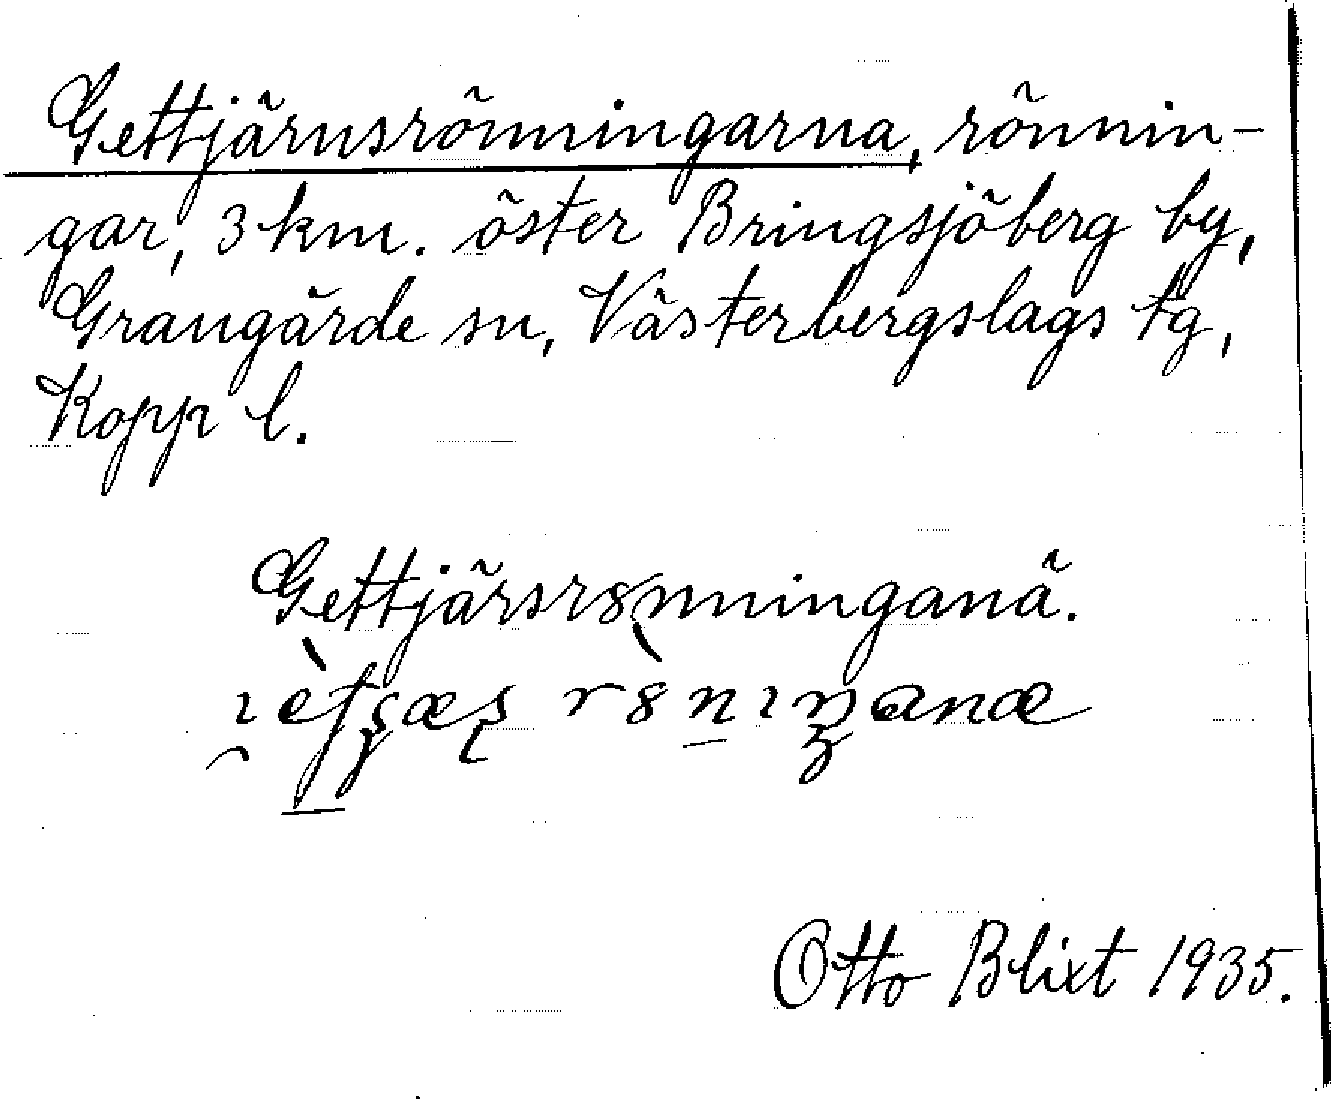 Gettjärnsrönningarna, rönnin-
gar, 3 km. öster Bringsjöberg by,
Grangärde sn, Västerbergslags tg,
Kopp l.
Gettjärsrȣnninganä.
Otto Blixt 1935.